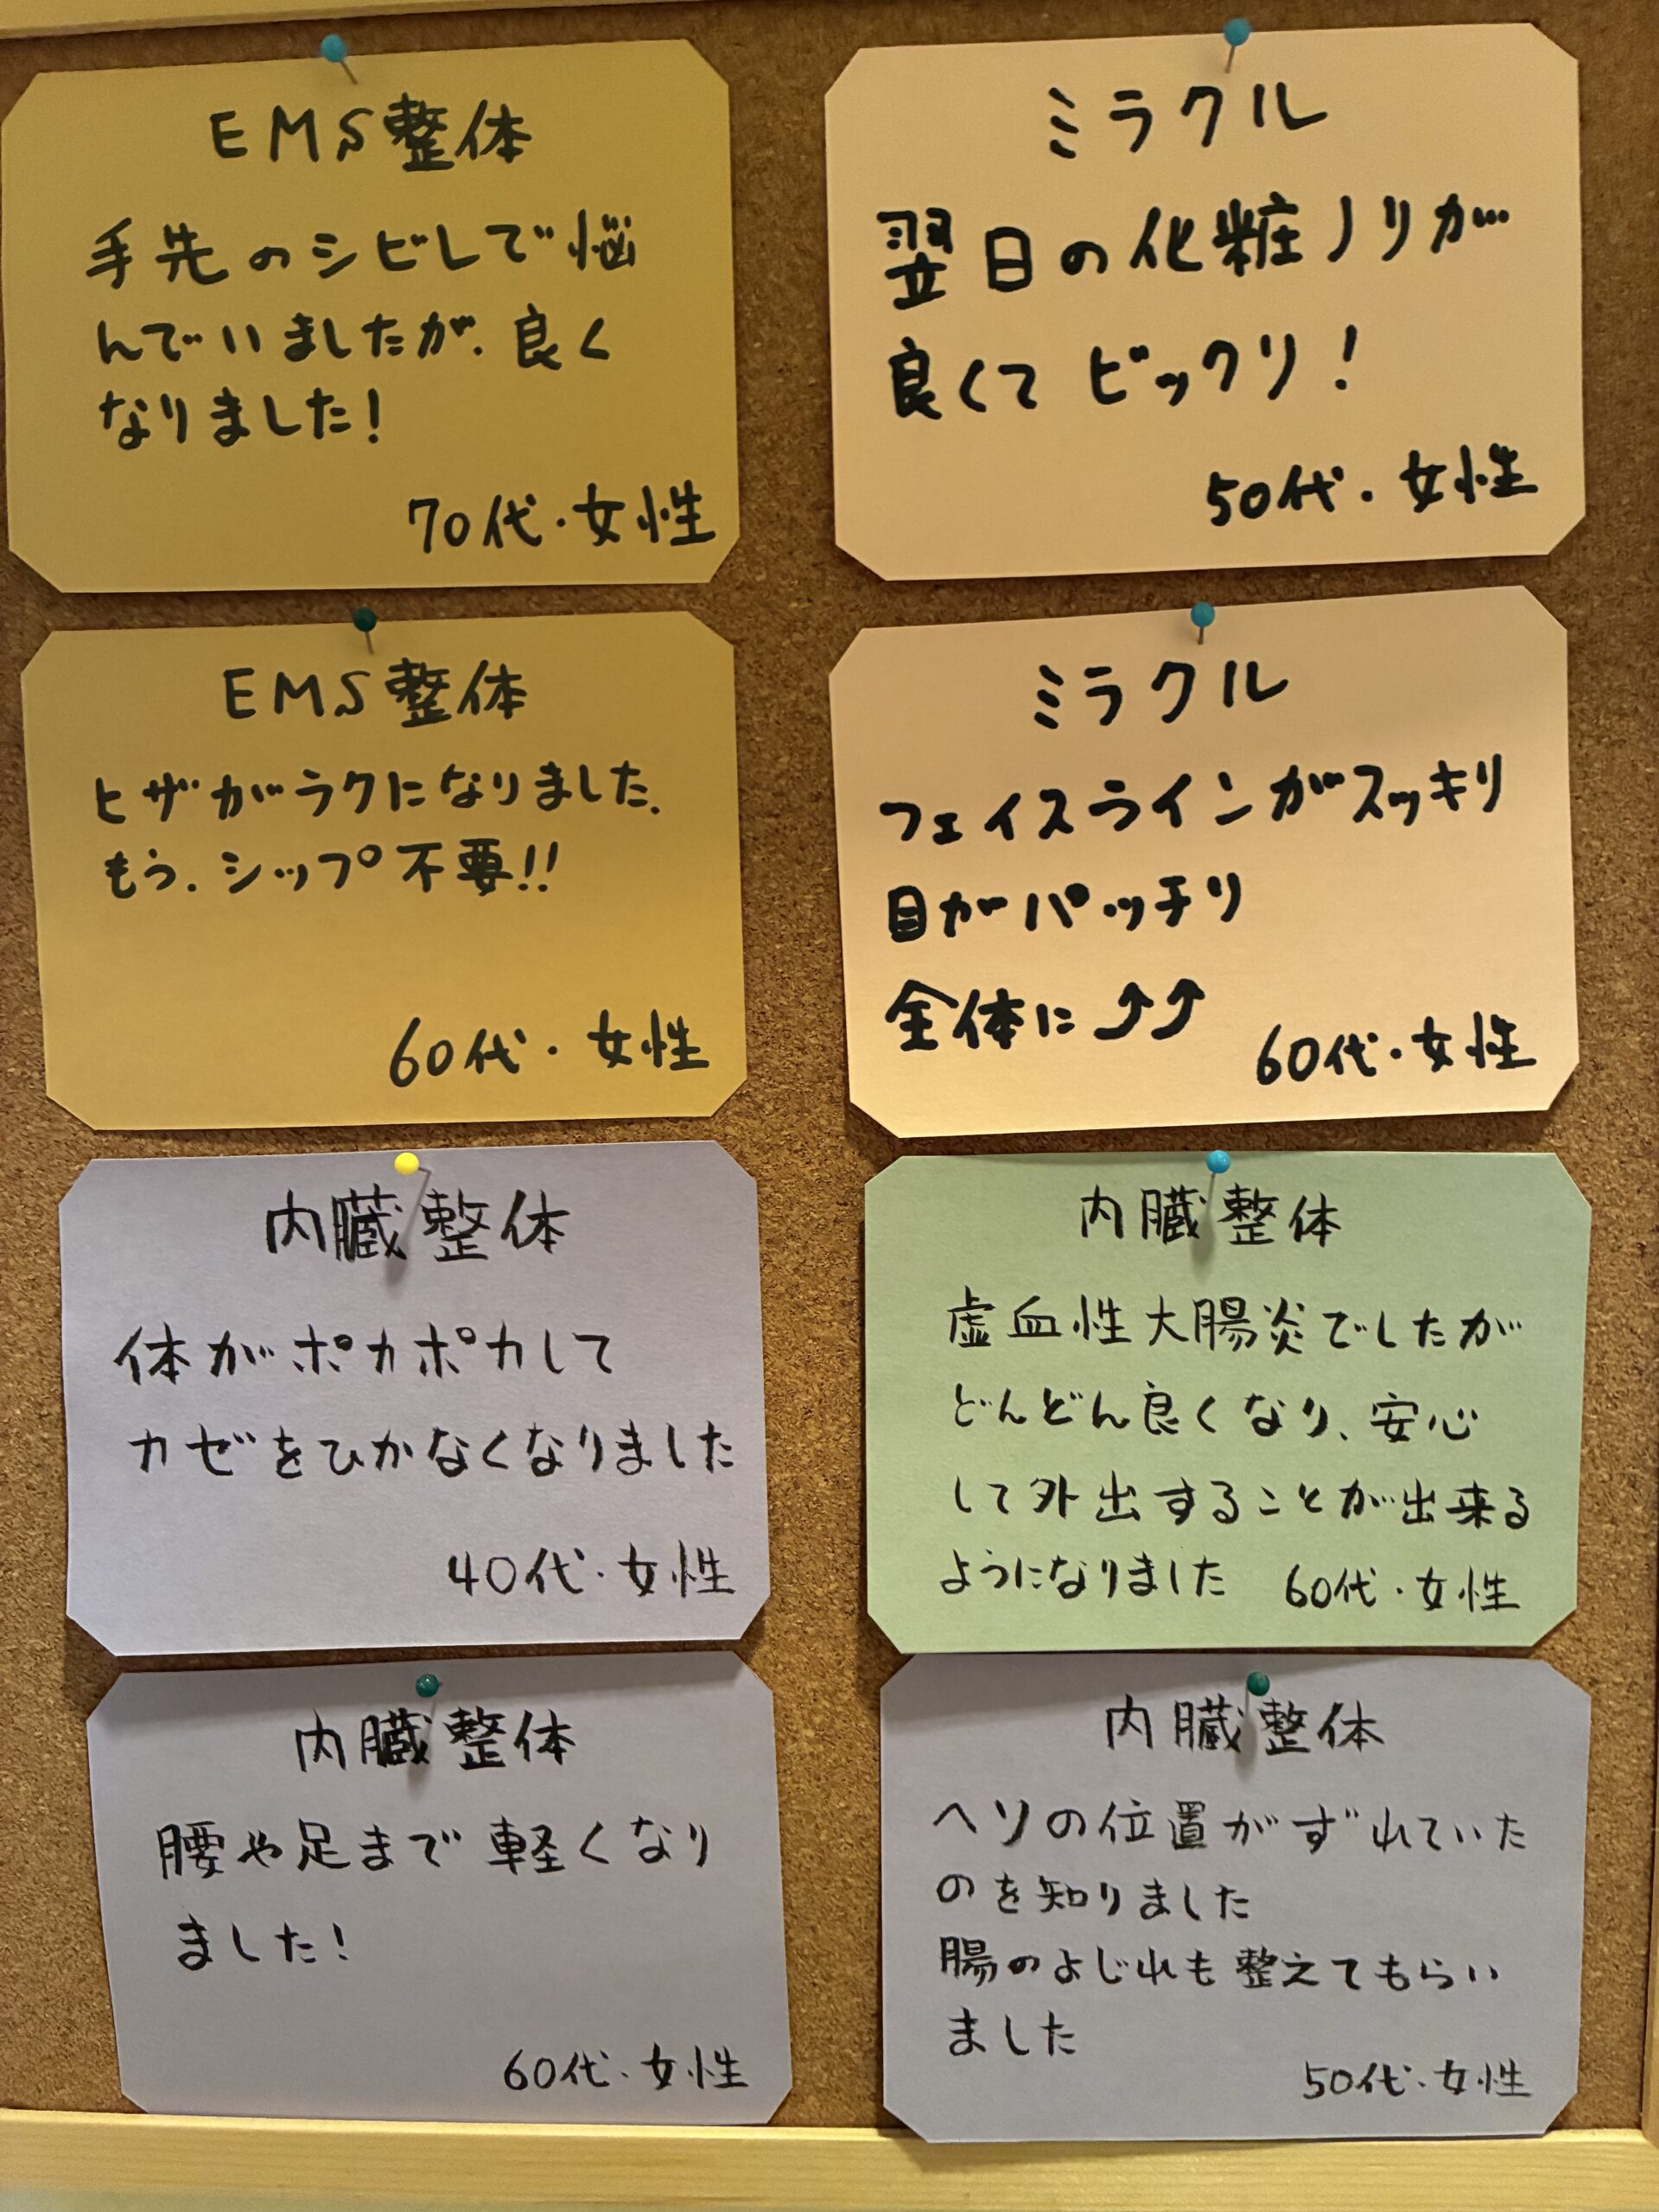 EMS整体
手先のシビレで悩
んでいましたが、良く
なりました!
70代・女性
ミラクル
翌日の化粧ノリが
良くてビックリ!
50代・女性
EMS整体
ヒザがラクになりました。
もう、シップ不要!!
60代・女性
ミラクル
フェイスラインがスッキリ
目がパッチリ
全体に⤴⤴
60代・女性
内臓整体
体がポカポカして
カゼをひかなくなりました
40代・女性
内臓整体
虚血性大腸炎でしたが
どんどん良くなり、安心
して外出することが出来る
ようになりました 60代・女性
内臓整体
腰や足まで軽くなり
ました!
60代・女性
内臓整体
ヘソの位置がずれていた
のを知りました
腸のよじれも整えてもらい
ました
50代・女性